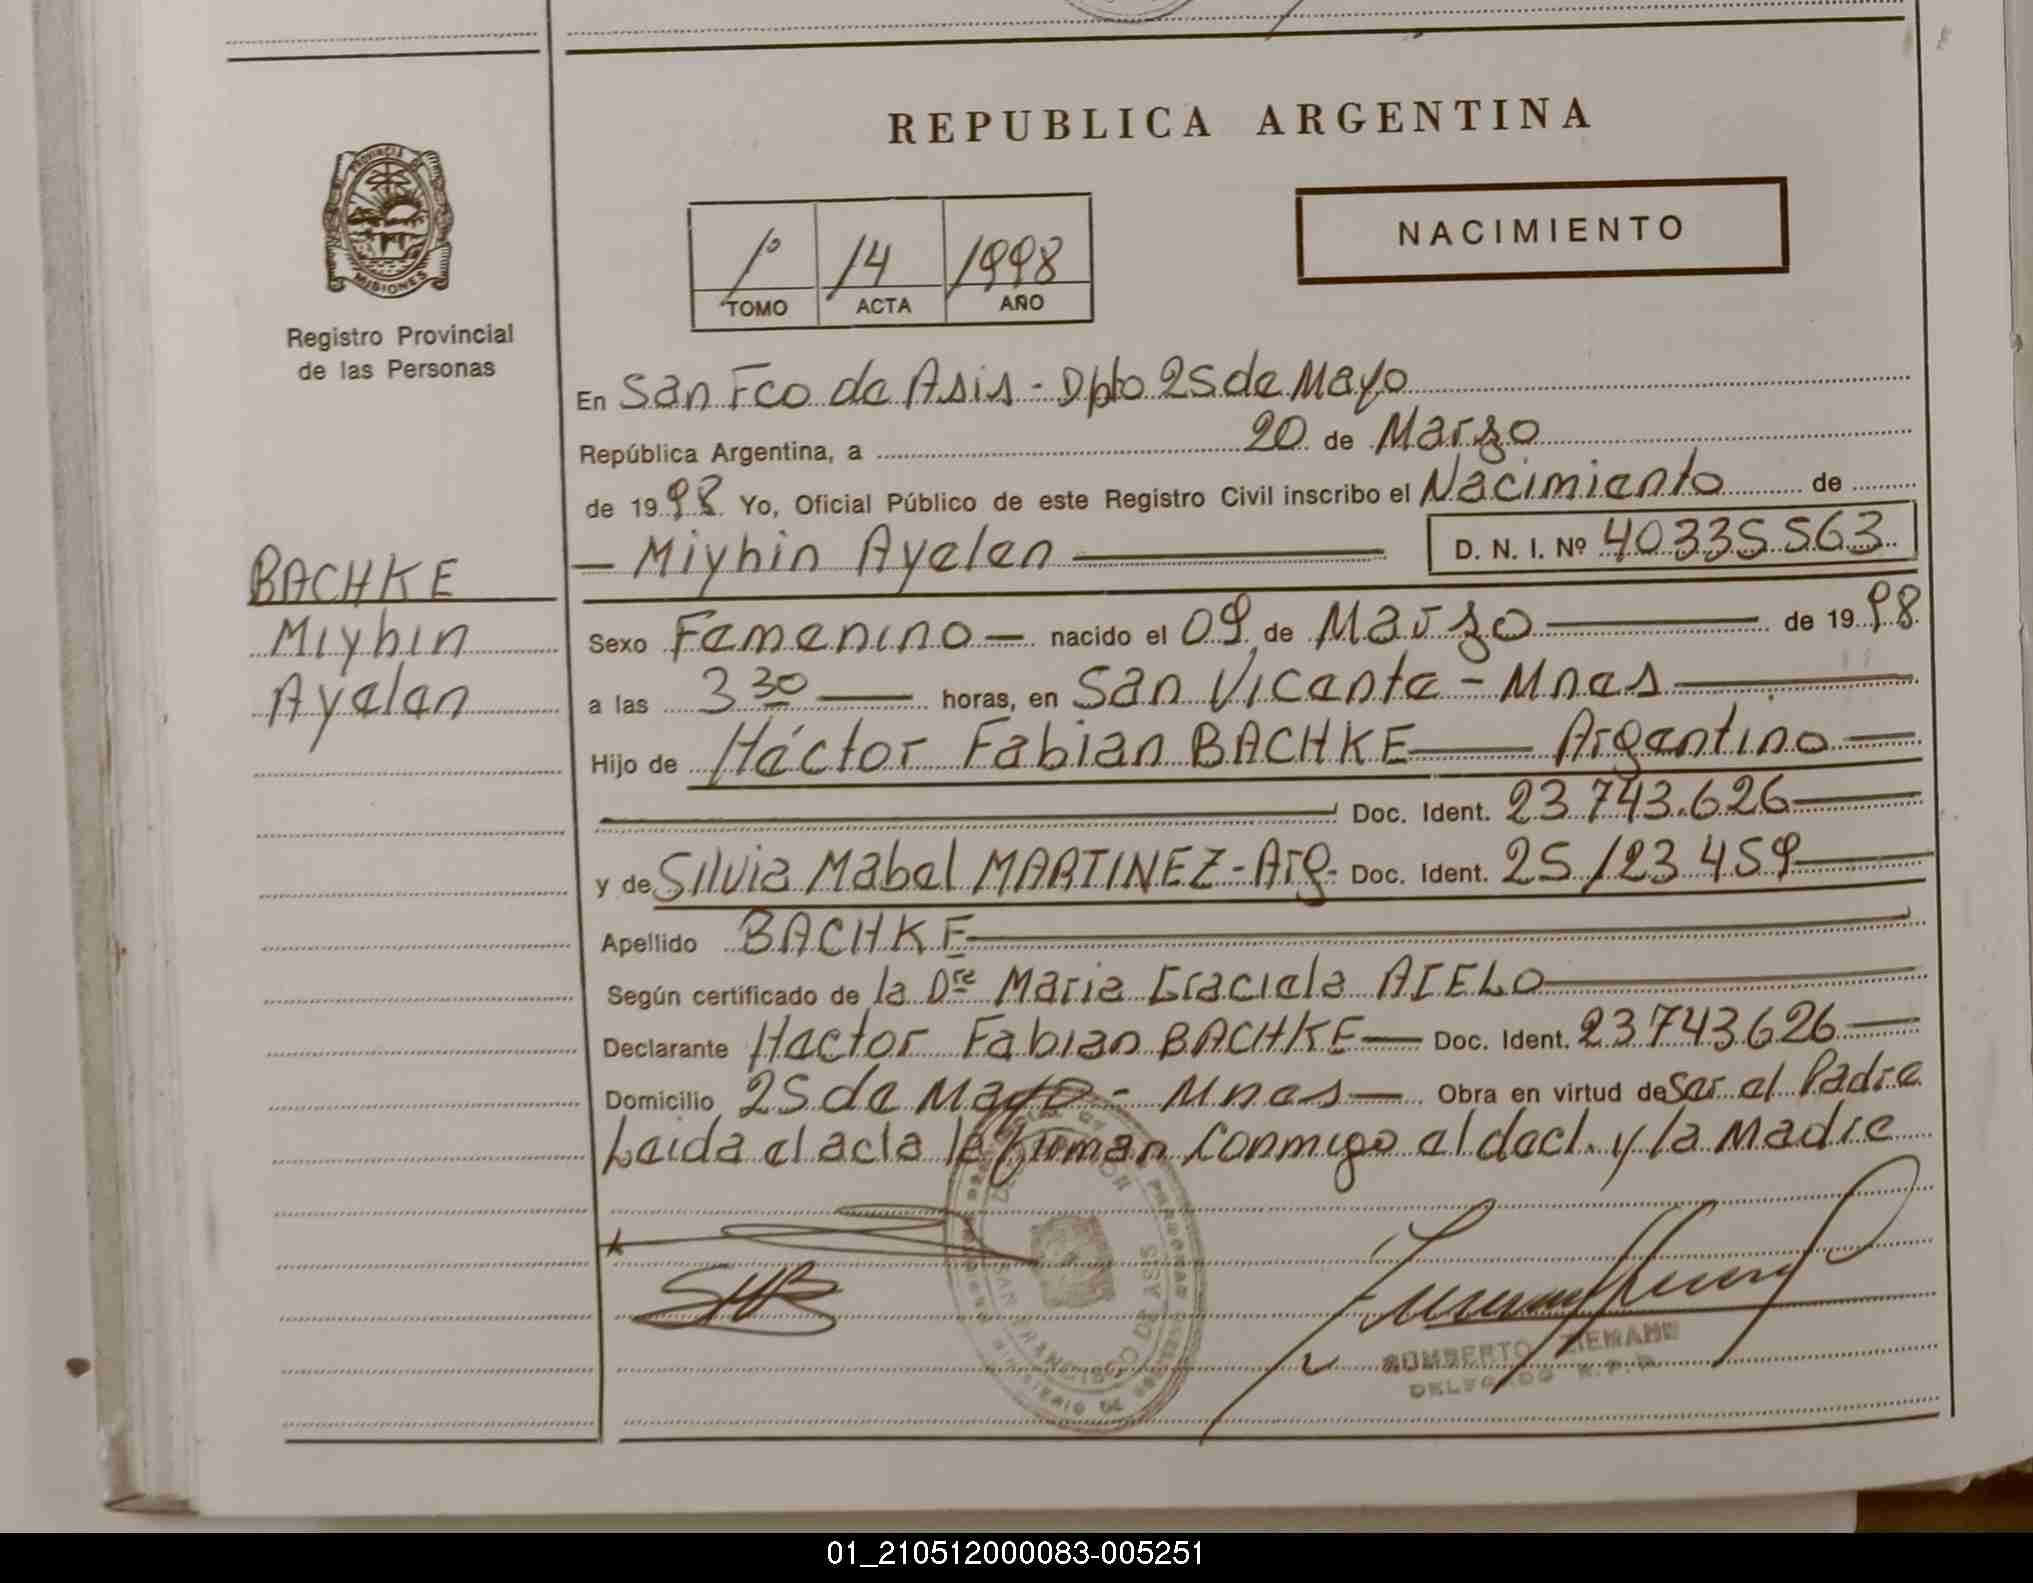 REPUBLICA ARGENTINA
PROVINCIA DE
MISIONES
Registro Provincial
de las Personas
1º 14 1998
TOMO ACTA AÑO
NACIMIENTO
En San Fco de Asis - Dpto 25 de Mayo
República Argentina, a 20 de Marzo
de 1998 Yo, Oficial Público de este Registro Civil inscribo el Nacimiento de
— Miyhin Ayelen — D. N. I. Nº 40335563
BACHKE
Miyhin
Ayelen
Sexo Femenino — nacido el 09 de Marzo — de 1998
a las 3 30 — horas, en San Vicente - Mnes —
Hijo de Héctor Fabian BACHKE — Argentino —
Doc. Ident. 23.743.626 —
y de Silvia Mabel MARTINEZ - Arg - Doc. Ident. 25/23459 —
Apellido BACHKE —
Según certificado de la Dra Maria Graciela —
Declarante Hector Fabian BACHKE — Doc. Ident. 23743626 —
Domicilio 25 de Mayo - Mnes — Obra en virtud de ser el Padre
Leida el acta la firman conmigo el decl. y la Madre
SAN FRANCISCO DE ASIS
ZIEMANN
01_210512000083-005251